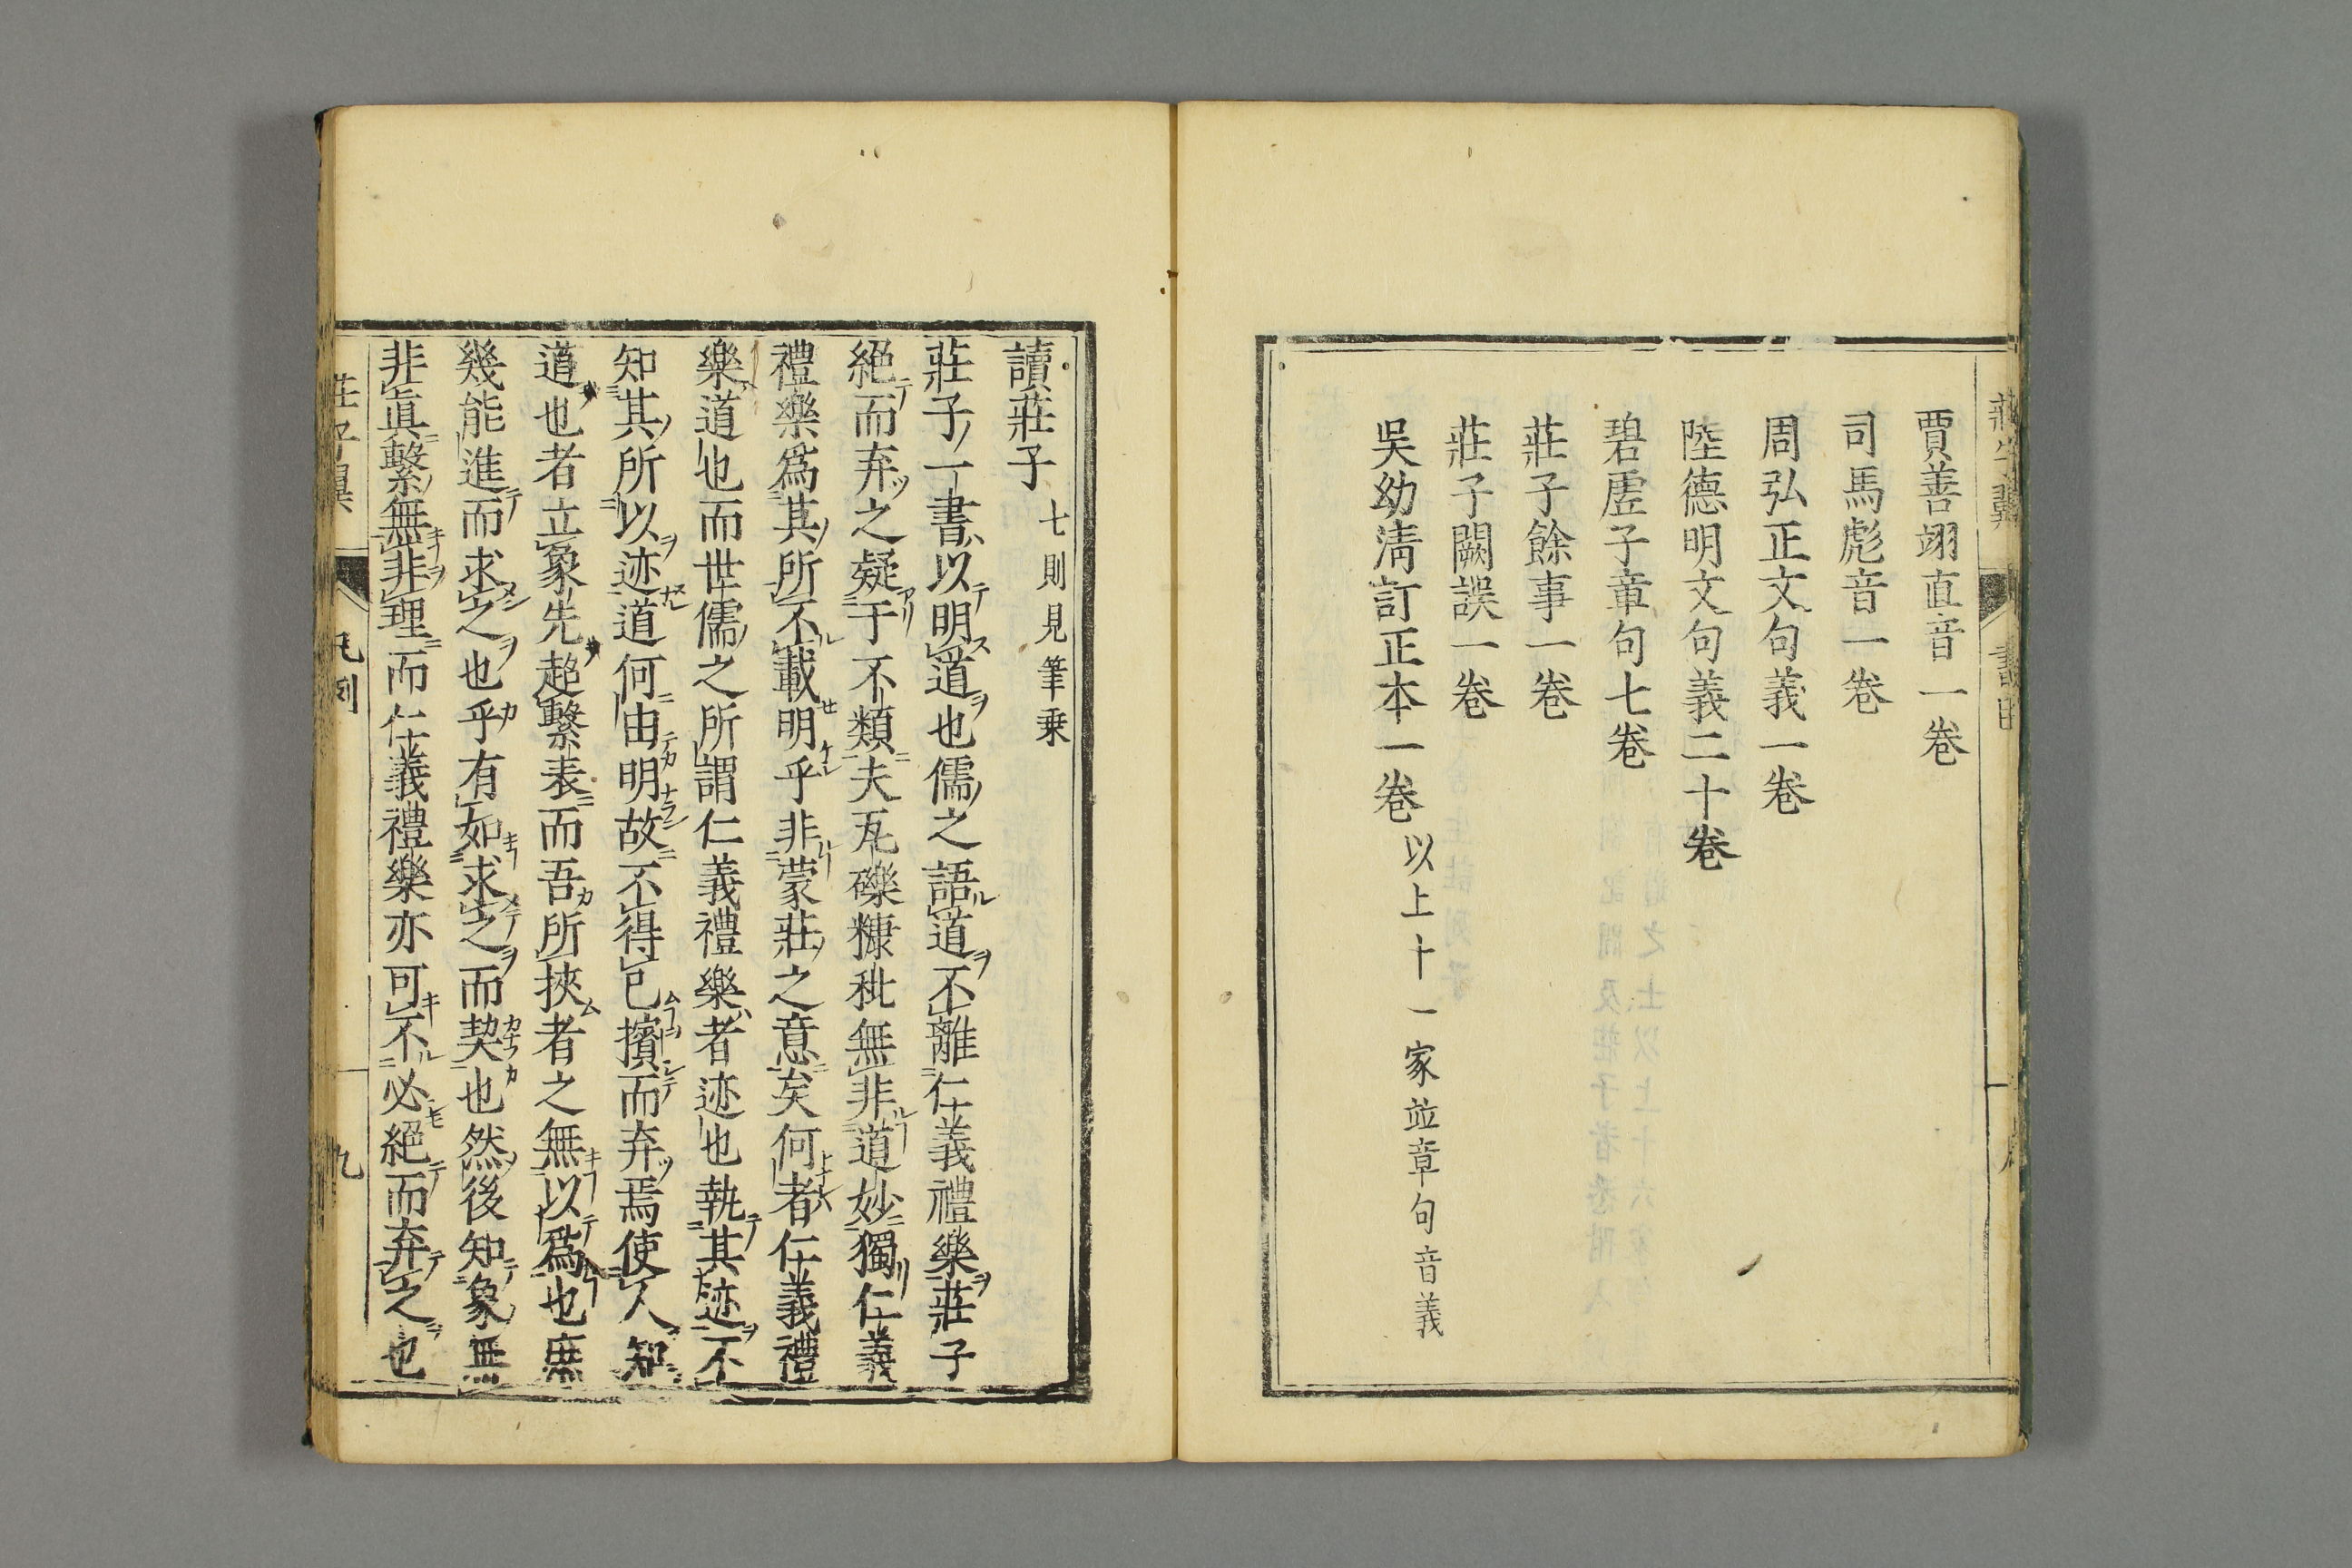 賈善翊直音一卷
司馬彪音一卷
周弘正文句義一卷
陸德明文句義二十卷
碧虛子章句七卷
莊子餘事一卷
莊子闕誤一卷
吳幼淸訂正本一卷 以上十一家並章句音義
讀莊子 七則見筆乗
莊子一書以明道也儒之語道不離仁義禮樂莊子
絕而弃之疑于不類夫瓦礫糠秕無非道妙獨仁義
禮樂爲其所不載明乎非蒙莊之意矣何者仁義禮
樂道也而世儒之所謂仁義禮樂者迹也執其迹不
知其所以迹道何由明故不得已擯而弃焉使人知
道也者立象先超繫表而吾所挾者之無以爲也庶
幾能進而求之也乎有如求之而契也然後知象無
非眞繫無非理而仁義禮樂亦可不必絕而弃之也
莊子翼
凡例
九